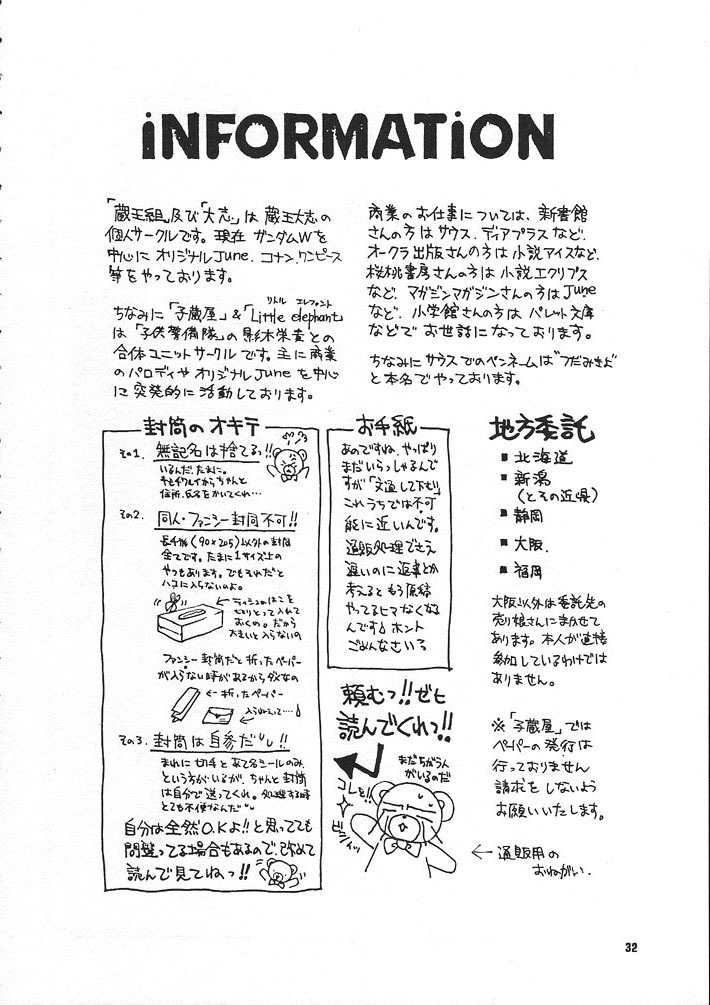 iNFORMATiON
「蔵王組」及び「大志」は 蔵王大志の
個人サークルです。現在 ガンダムWを
中心に オリジナルJune、コナン、ワンピース
等をやっております。
リトル エレファント
ちなみに「子蔵屋」&「Little elephant」
は「子供警備隊」の影木栄貴との
合体ユニットサークルです。主に商業
のパロディやオリジナルJuneを中心
に突発的に活動しております。
商業のお仕事については、新書館
さんの方は サウス、ディアプラスなど、
オークラ出版さんの方は 小説アイスなど、
桜桃書房さんの方は 小説エクリプス
など、マガジンマガジンさんの方はJune
など、小学館さんの方は パレット文庫
などで お世話になっております。
ちなみに サウスでのペンネームは“つだみきよ”
と本名でやっております。
封筒のオキテ
その1. 無記名は捨てるっ!!
いるんだ、たまに。
キモチワルイからちゃんと
住所、氏名をかいてくれ…
その2. 同人・ファンシー封筒不可!!
長千形(90×205)以外の封筒
全てです。たまに1サイズ上の
やつもあります。でもそれだと
ハコに入らないのよ。
←ティシュのはこを
とって入れて
おくの。だから
大きいと入らないの
ファンシー封筒だと折ったペーパー
が入らない時があるからダメなの
←折ったペーパー
入らねえって…
その3. 封筒は自参だ!!
まれに切手とあて名シールのみ、
という方がいるが、ちゃんと封筒
は自分で送ってくれ。処理する時
とても不便なんだ
自分は全然O.Kよ!!と思ってても
間違ってる場合もあるので、改めて
読んで見てねっ!!
お手紙
あのですね、やっぱり
まだいらっしゃるんで
すが「文通して下さい」
これうちでは不可
能に近いんです。
通販処理でさえ
遅いのに返事とか
考えるともう原稿
やってるヒマなくなる
んです ホント
ごめんなさい
頼むっ!!ゼヒ
読んでくれっ!!
まだちがう人
がいるのだ
コレを!!
ビシィッ
地方委託
■ 北海道
■ 新潟
(とその近県)
■ 静岡
■ 大阪
■ 福岡
大阪以外は委託先の
売り娘さんにまかせて
あります。本人が直接
参加しているわけでは
ありません。
※「子蔵屋」では
ペーパーの発行は
行っておりません
請求をしないよう
お願いいたします。
← 通販用の
おねがい.
32